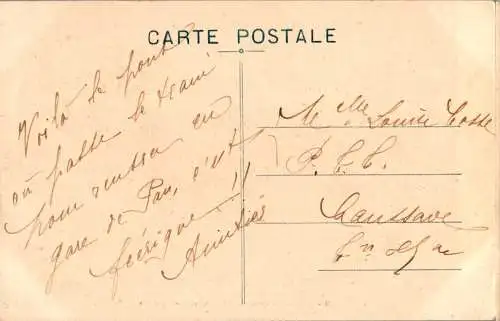 CARTE POSTALE
Voilà le pont
où passe le train
pour rentrer en
gare de Pau, c'est
féérique !!
Amitiés
Melle Louise Cosse
P.T.T.
Caussade
Tn et Gne